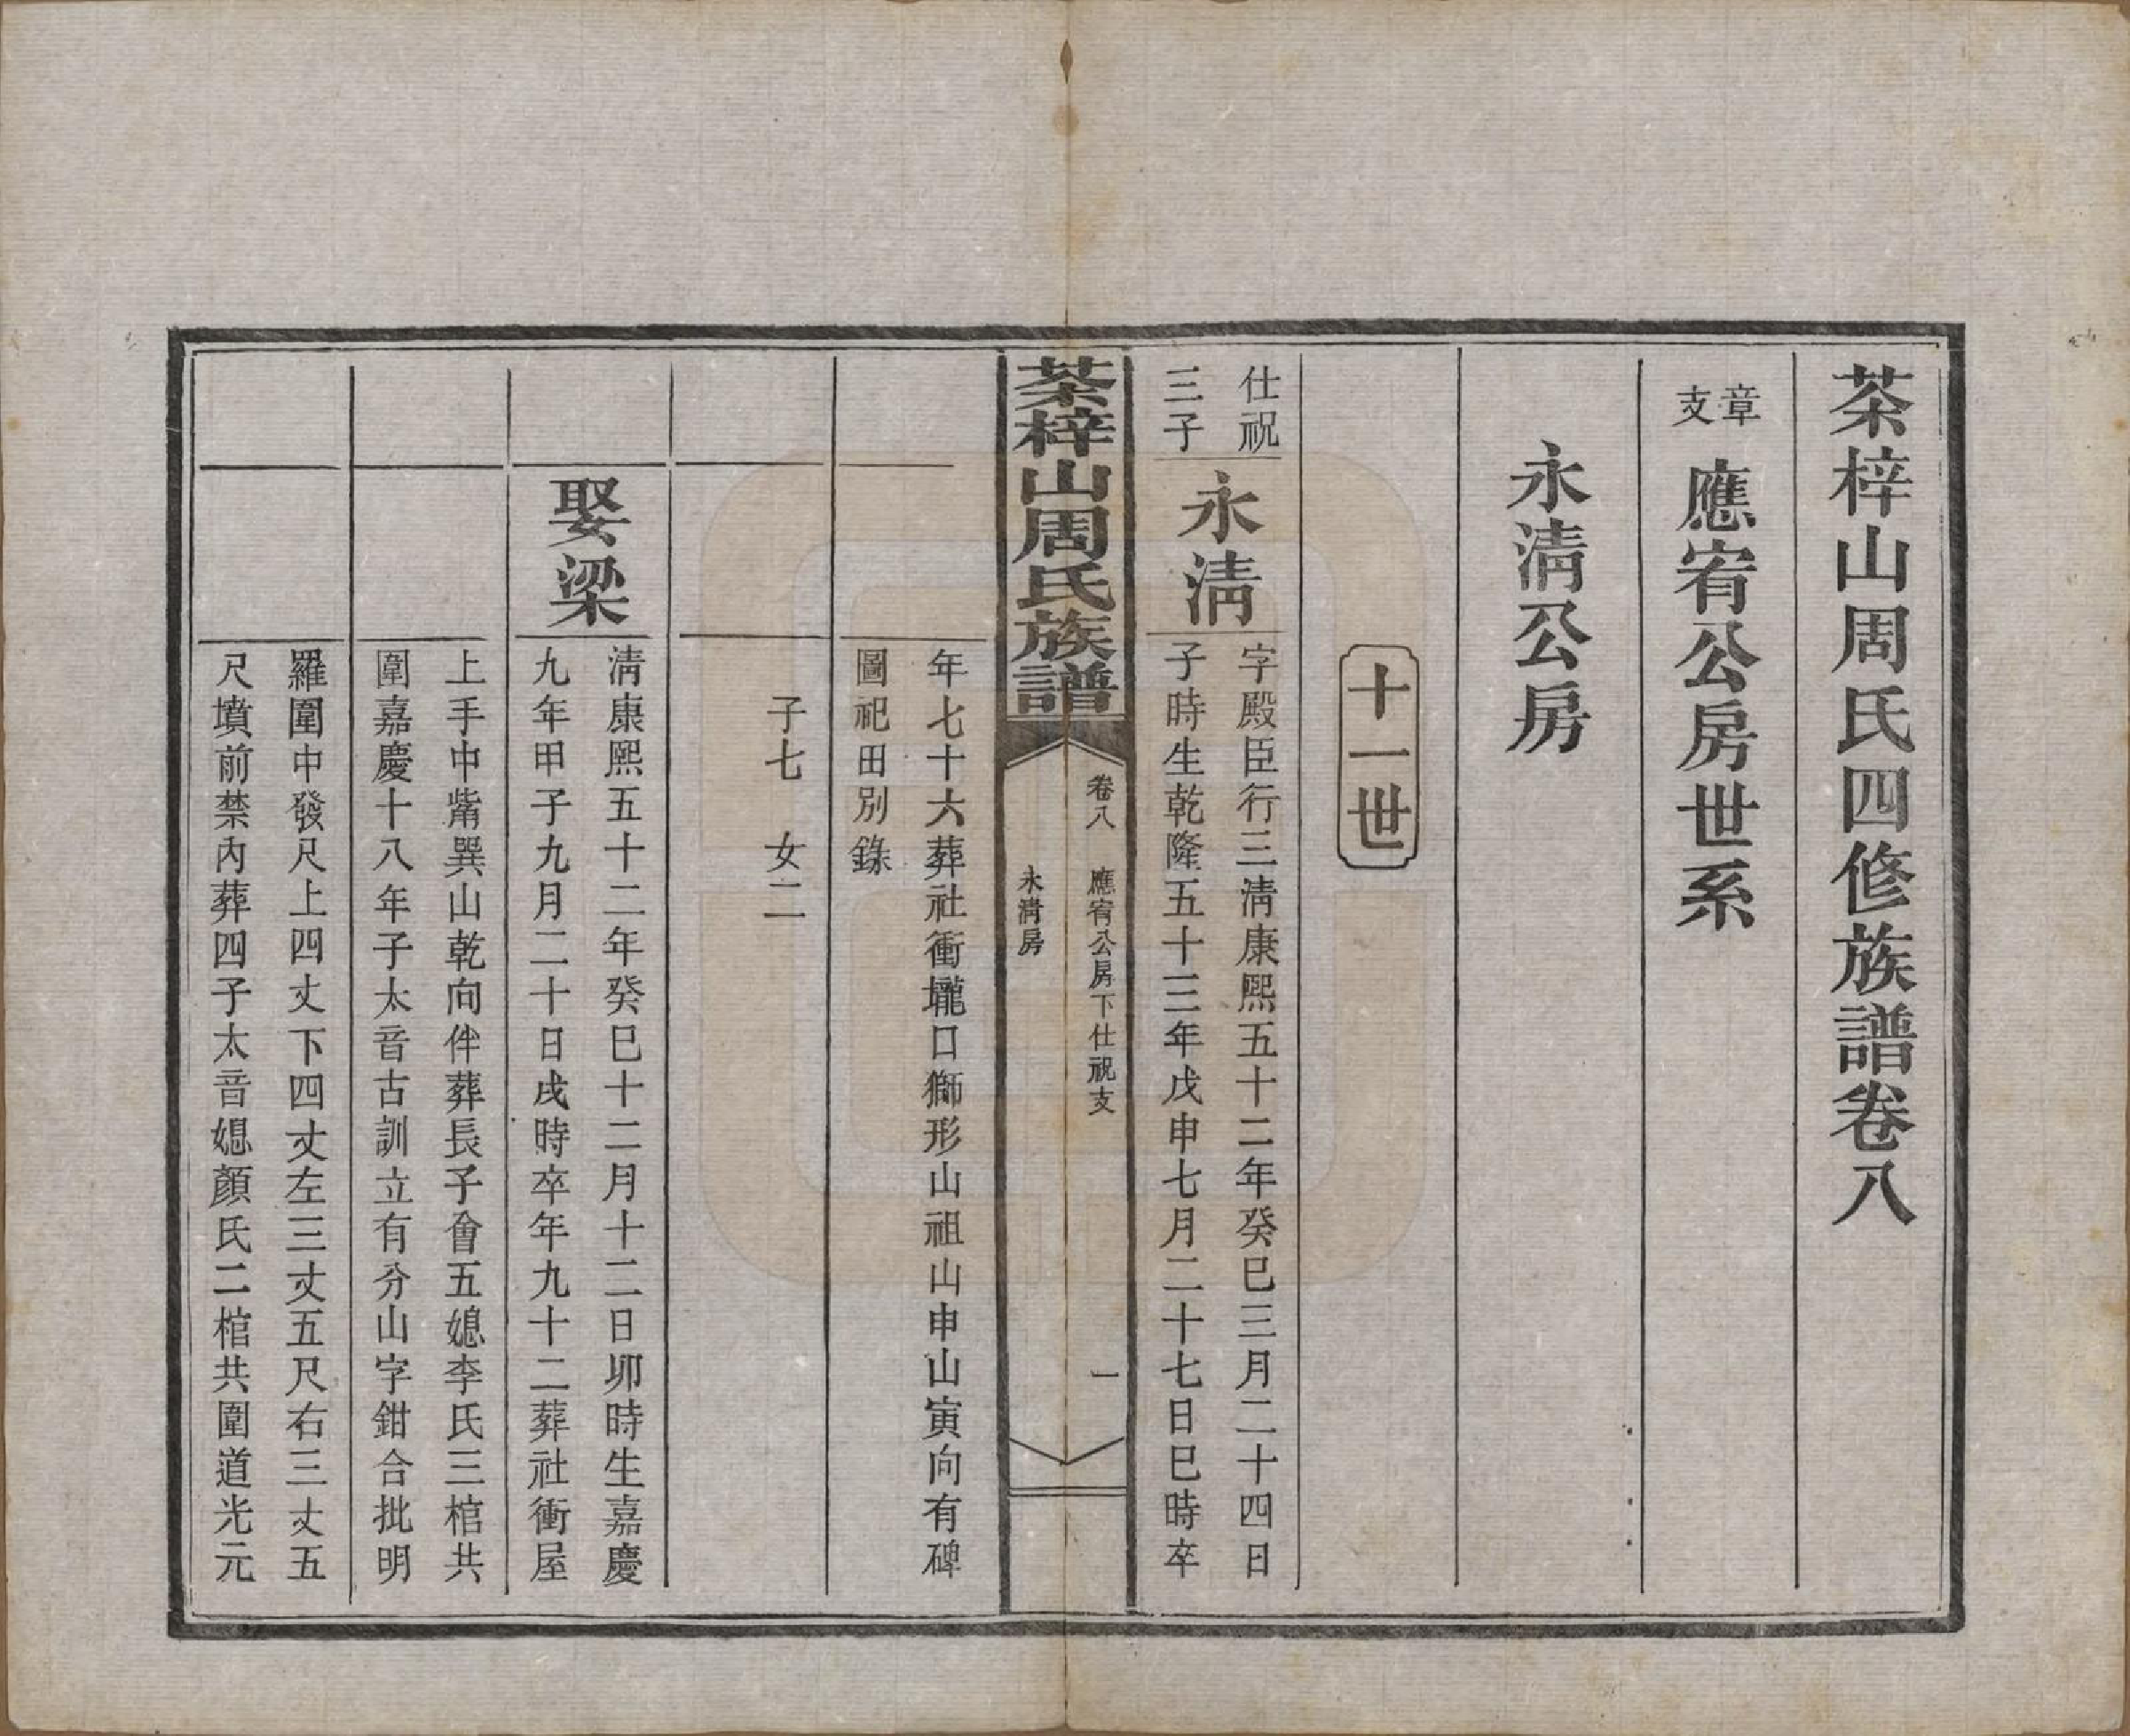 茶梓山周氏四修族譜卷八
章支 應宥公房世系
永淸公房
十一世
仕祝
三子
永淸
字殿臣行三淸康熙五十二年癸巳三月二十四日
子時生乾隆五十三年戊申七月二十七日巳時卒
茶梓山周氏族譜
卷八 應宥公房下仕祝支
永淸房
一
年七十六葬社衝壠口獅形山祖山申山寅向有碑
圖祀田別錄
子七 女二
娶梁
淸康熙五十二年癸巳十二月十二日卯時生嘉慶
九年甲子九月二十日戌時卒年九十二葬社衝屋
上手中觜巽山乾向伴葬長子會五媳李氏三棺共
圍嘉慶十八年子太音古訓立有分山字鉗合批明
羅圍中發尺上四丈下四丈左三丈五尺右三丈五
尺墳前禁內葬四子太音媳顏氏二棺共圍道光元